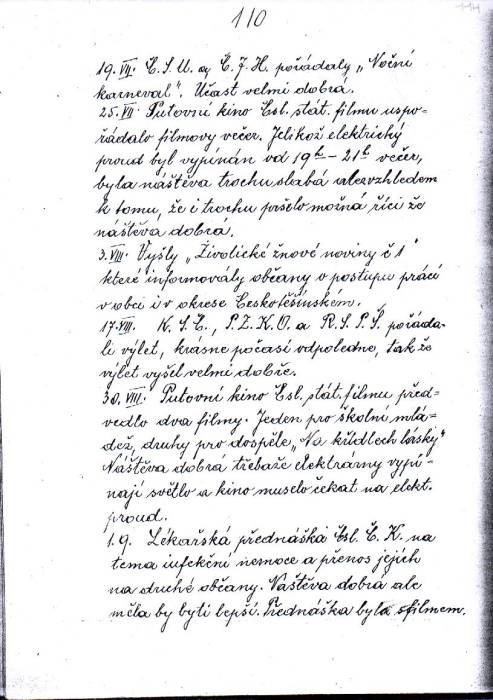 110
19. VII. Č. S. U. a Č. J. H. pořádaly „Noční
karneval". Účast velmi dobrá.
25. VII. Putovní kino Čsl. stát. filmu uspo-
řádalo filmovy večer. Jelikož elektrický
proud byl vypínán od 19h – 21h večer,
byla náštěva trochu slabá ale vzhledem
k tomu, že i trochu pršelo možná říci že
náštěva dobra.
3. VIII. Vyšly „Živolické žnové noviny č 1"
které informovály občany o postupu prácí
v obci i v okrese Českotěšínském.
17. VIII. K. S. Č., P. Z. K. O. a R. S. P. Š. pořáda-
li výlet, krásne počasí odpoledne, tak že
výlet vyšel velmi dobře.
30. VIII. Putovní kino Čsl. stát. filmu před-
vedlo dva filmy. Jeden pro školní mlá-
dež, druhy pro dospěle „Na křídlech lásky"
Náštěva dobrá třebaže elektrárny vypí-
nají světlo a kino muselo čekat na elekt.
proud.
1. 9. Lékařská přednáška Čsl. Č. K. na
tema infekční nemoce a přenos jejich
na druhé občany. Naštěva dobrá ale
měla by byti lepší. Přednáška byla s filmem.